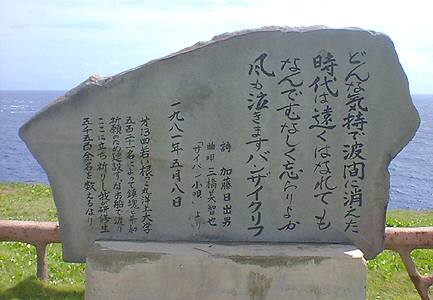 どんな気持で波間に消えた
時代は遠くはなれても
なんでむなしく忘らりよか
風も泣きますバンザイクリフ
詩 加藤日出男
曲唄 三橋美智也
「サイパン小唄」より
一九八一年五月八日
才13回若い根っこ洋上大学
五百二十一名によって鎮魂と平和
祈願のため建設す なお船で巡り
ここに立ち祈りし我が研修生
五千五百余名を数えるなり